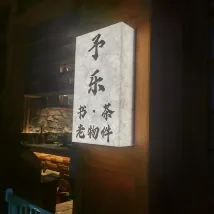 予乐
书·茶
老物件